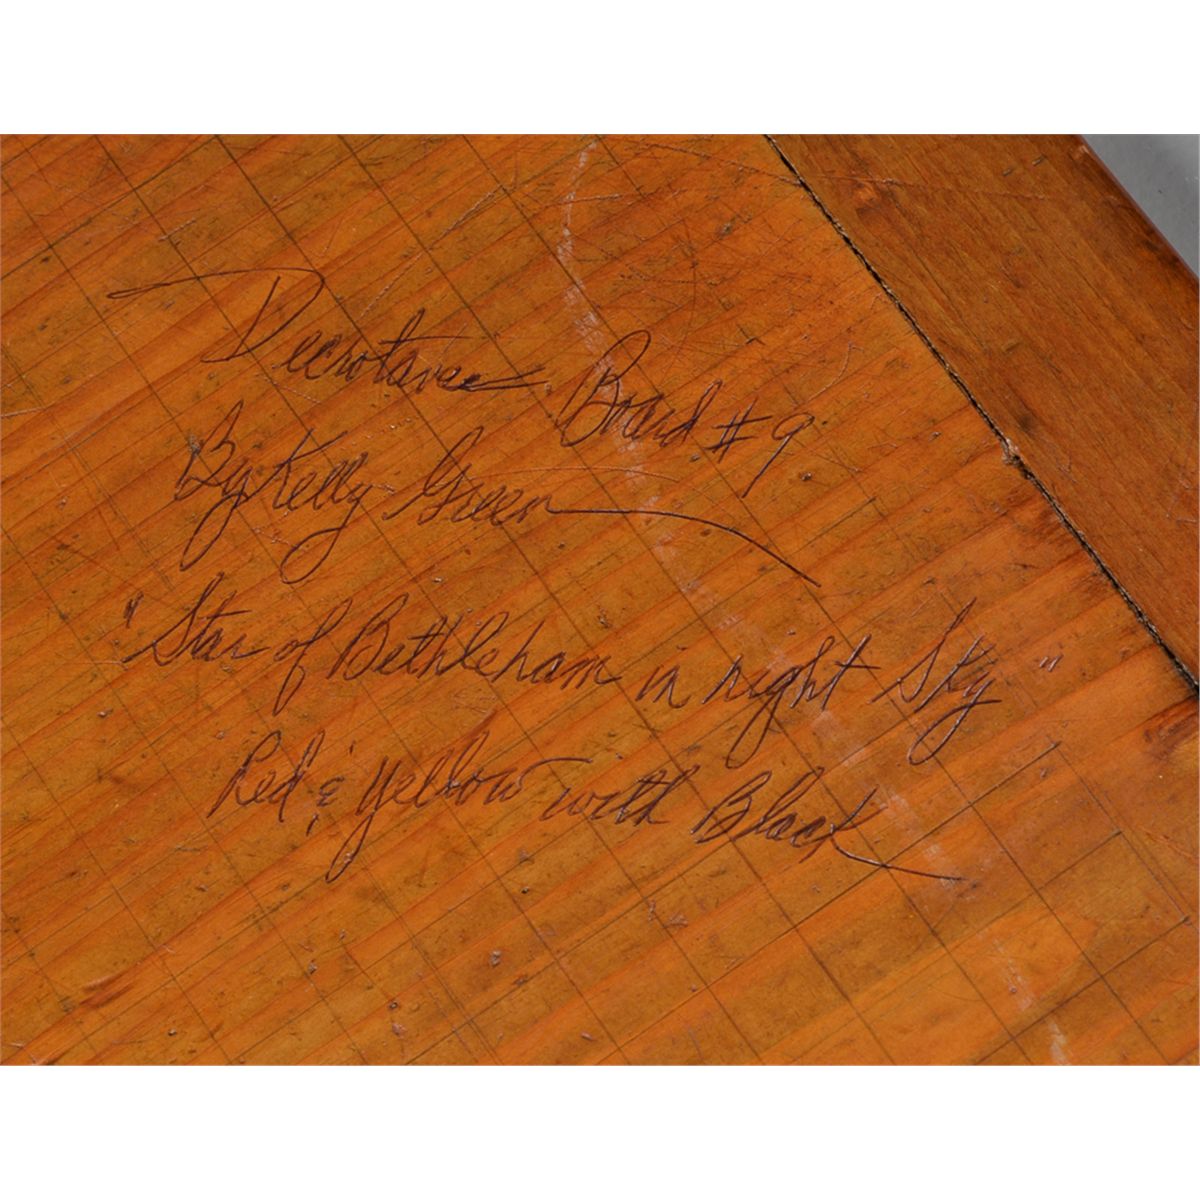 Decrotavee Board #9
By Kelly Green
"Star of Bethleham in night Sky"
Red & Yellow with Black